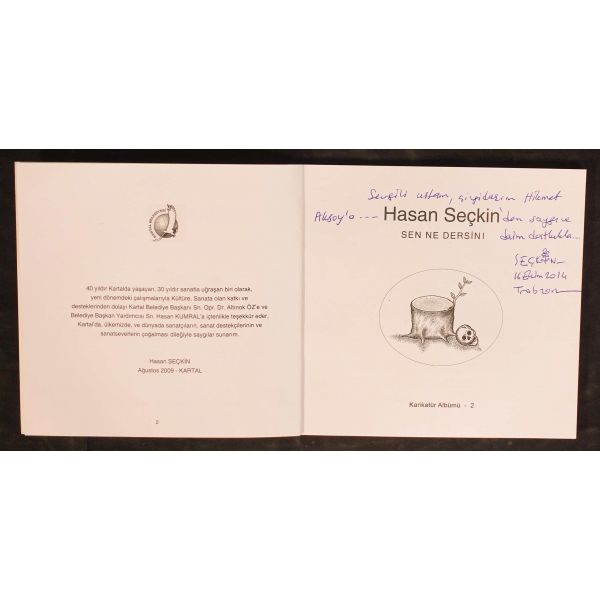 KARTAL BELEDİYESİ
40 yıldır Kartalda yaşayan, 30 yıldır sanatla uğraşan biri olarak,
yeni dönemdeki çalışmalarıyla Kültüre, Sanata olan katkı ve
desteklerinden dolayı Kartal Belediye Başkanı Sn. Opr. Dr. Altınok ÖZ'e ve
Belediye Başkan Yardımcısı Sn. Hasan KUMRAL'a içtenlikle teşekkür eder,
Kartal'da, ülkemizde, ve dünyada sanatçıların, sanat destekçilerinin ve
sanatseverlerin çoğalması dileğiyle saygılar sunarım.
Hasan SEÇKİN
Ağustos 2009 - KARTAL
2
Sevgili ustam, çizgidaşım Hikmet
Aksoy'a ---- Hasan Seçkin'den saygı ve
SEN NE DERSİN!
daim dostlukla...
SEÇKİN
Ekim 2014
Trabzon
Karikatür Albümü - 2